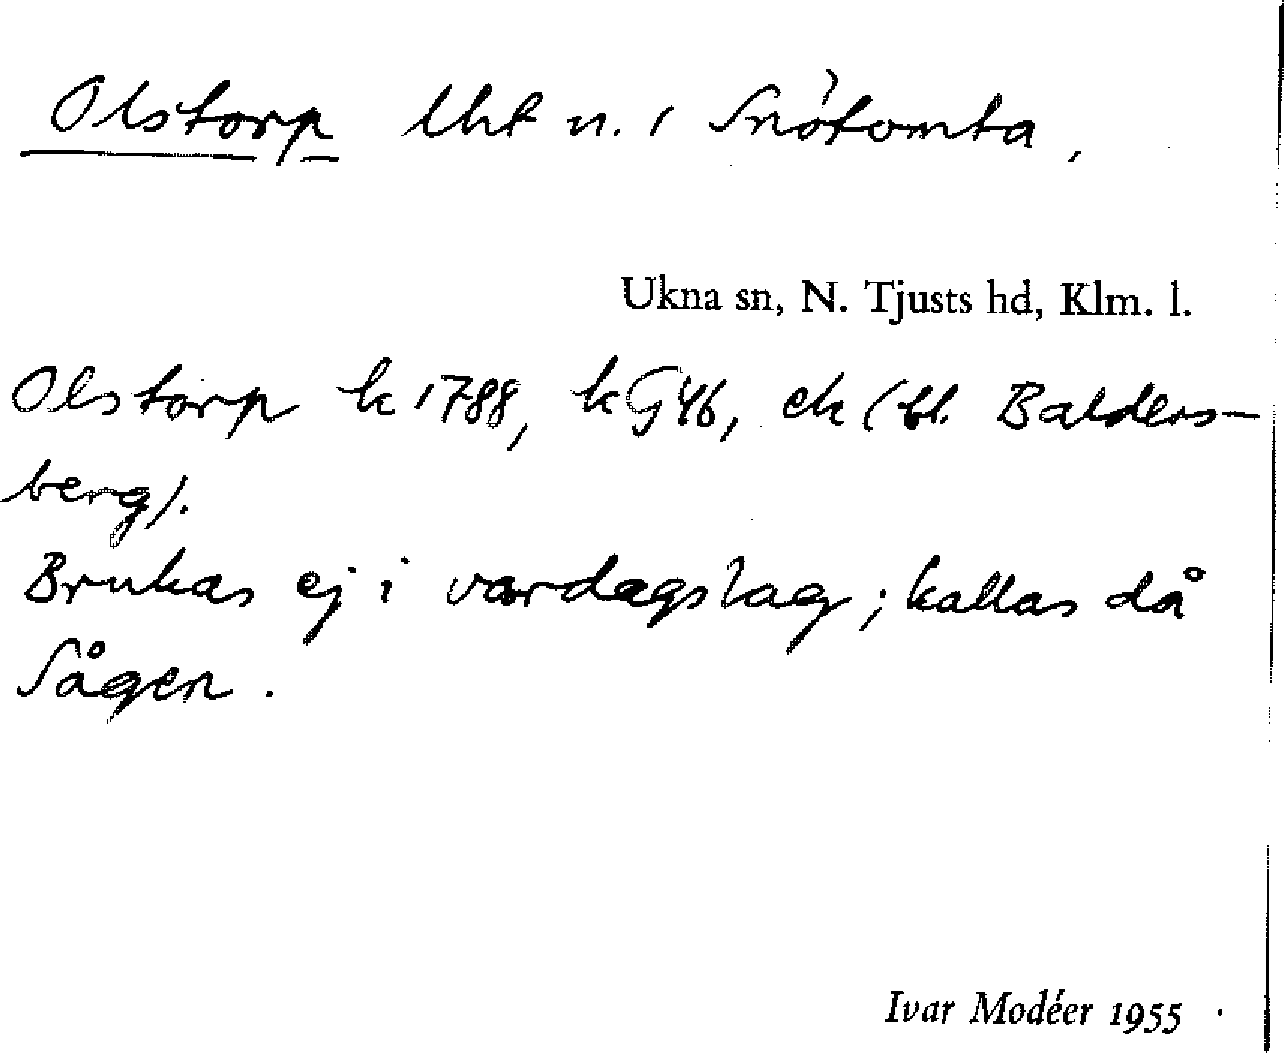 Olstorp lht n. i Snötomta,
Ukna sn, N. Tjusts hd, Klm. l.
Olstorp k 1788, kG46, ek (bl. Balders-
berg).
Brukas ej i vardagslag; kallas då
Sågen.
Ivar Modéer 1955